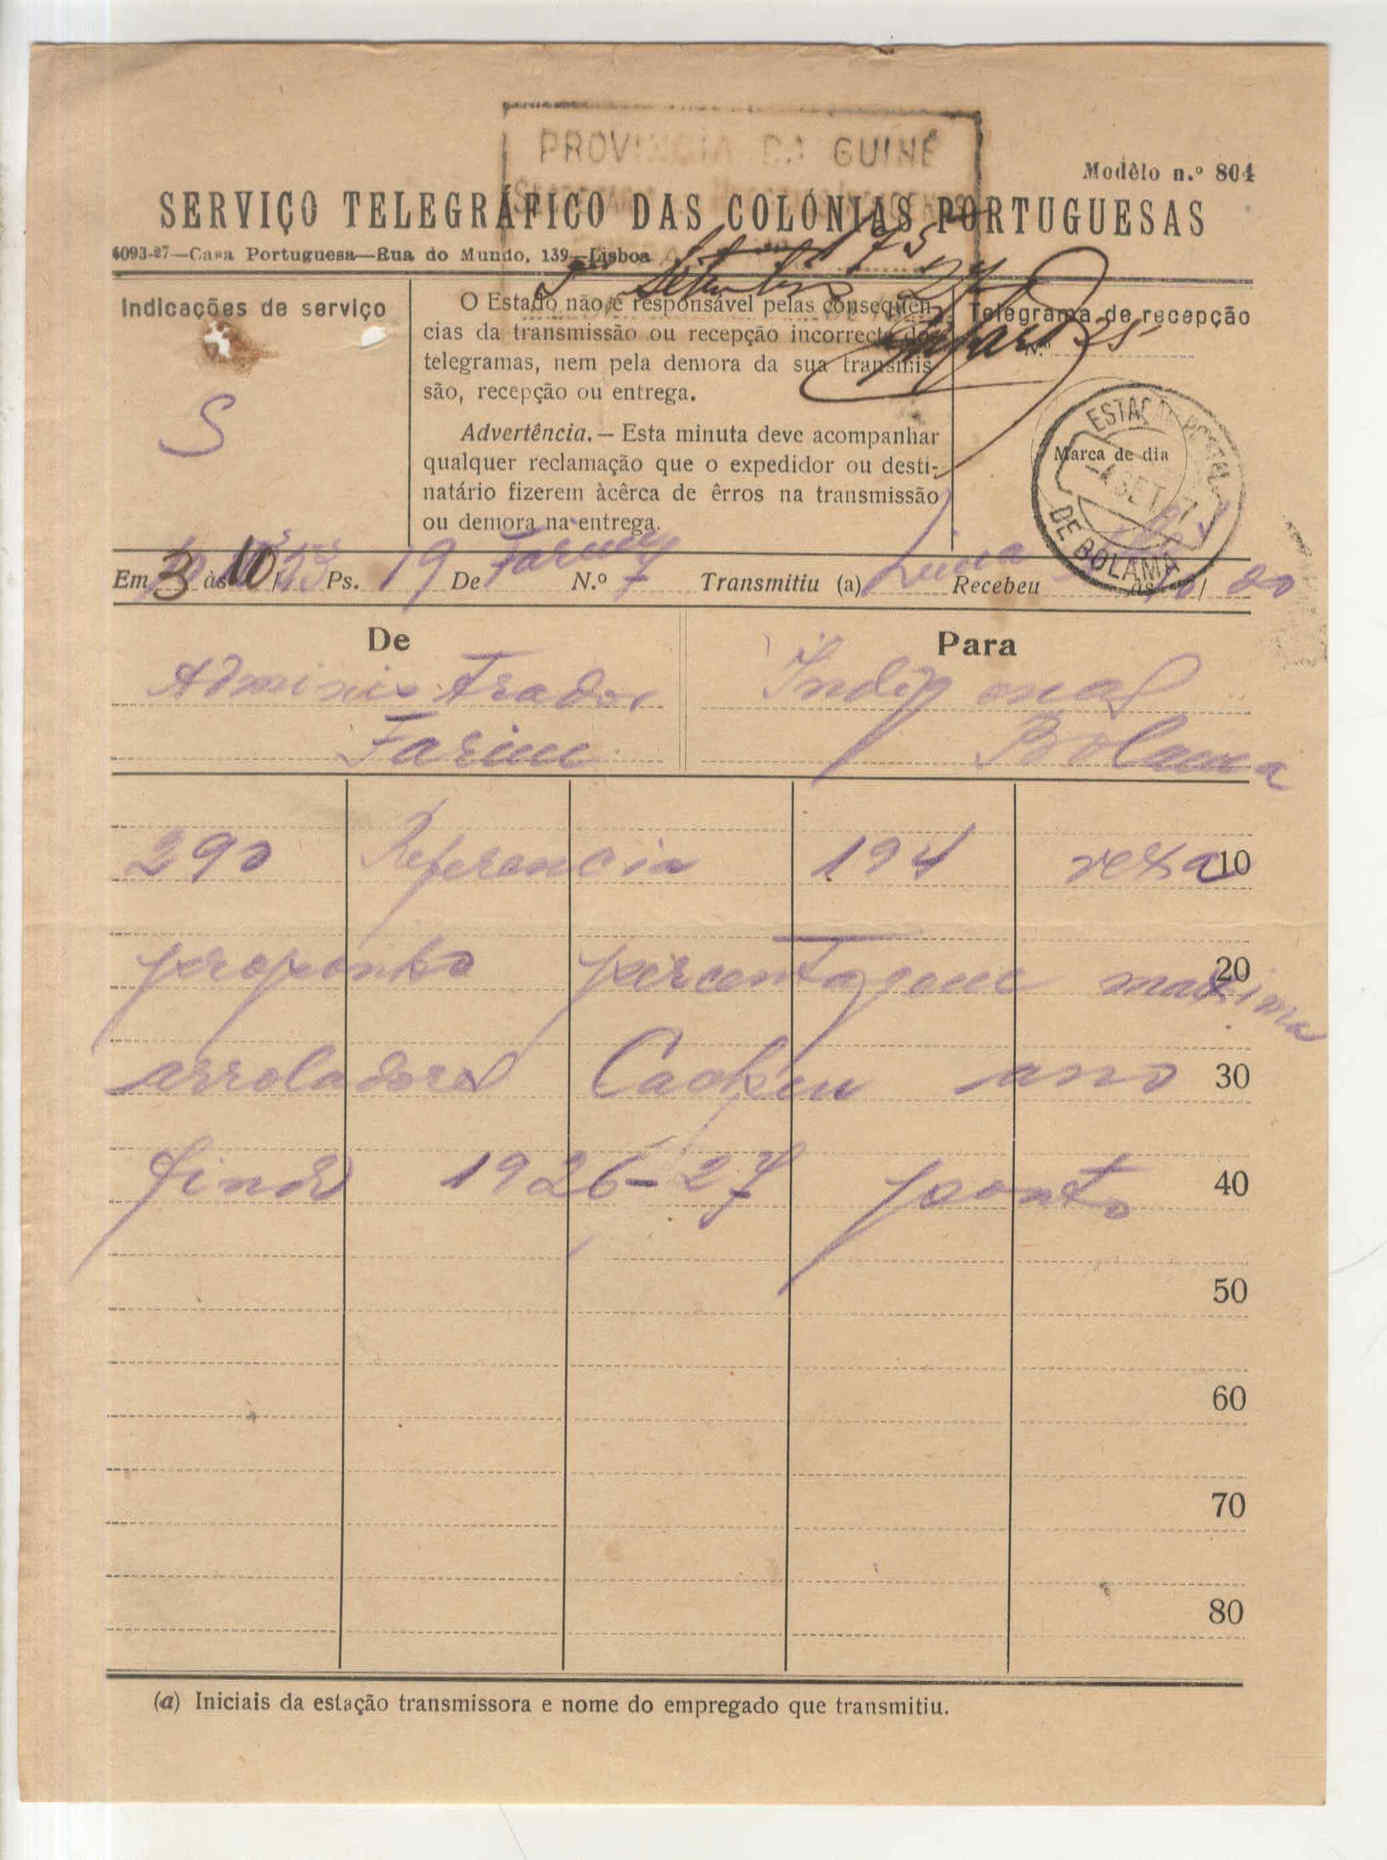 PROVINCIA DA GUINÉ
Modêlo n.º 804
SERVIÇO TELEGRÁFICO DAS COLÓNIAS PORTUGUESAS
6093-27—Casa Portuguesa—Rua do Mundo, 139—Lisboa
1753
5 Setembro 27
Indicações de serviço
S
O Estado não é responsável pelas conseqüên-
cias da transmissão ou recepção incorrecta dos
telegramas, nem pela demora da sua transmis-
são, recepção ou entrega.
Advertência.— Esta minuta deve acompanhar
qualquer reclamação que o expedidor ou desti-
natário fizerem àcêrca de êrros na transmissão
ou demora na entrega.
Telegrama de recepção
N.º 25
Marca de dia
ESTAÇÃO POSTAL
-4 SET 27
DE BOLAMA
Em 3 às 10 Ps. 19 De Farim N.º 7 Transmitiu (a) Recebeu às
De
Administrador
Farim
Para
Indigenas
Bolama
290 Referencia 194 vexa 10
proponho percentagem maxima 20
arroladores Cacheu ano 30
findo 1926-27 ponto 40
50
60
70
80
(a) Iniciais da estação transmissora e nome do empregado que transmitiu.